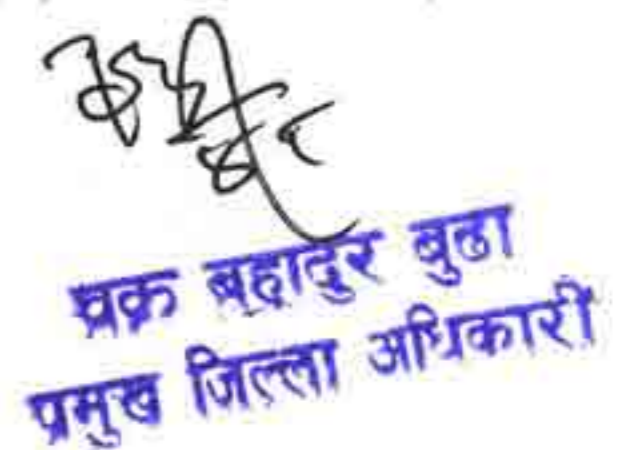 चक्र बहादुर बुढा
प्रमुख जिल्ला अधिकारी